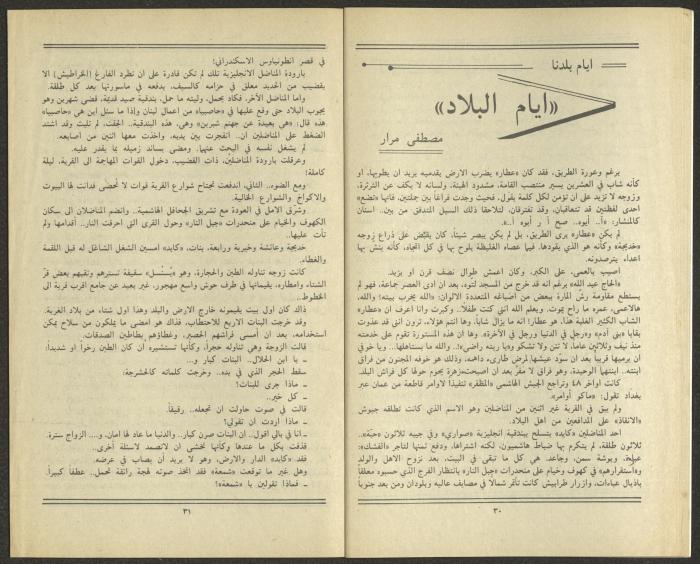 ايام بلدنا
«ايام البلاد»
مصطفى مرار
برغم وعورة الطريق، فقد كان «عطار» يضرب الارض بقدميه يريد ان يطويها، او
كأنه شاب في العشرين يسير منتصب القامة، مشدود الهيئة، ولسانه لا يكف عن الثرثرة،
وزوجه لا تزيد على ان تؤمن لكل كلمة يقول، فحيث وجدت فراغا بين جملتين، فانها «تضع»
احدى لفظتين قد تتعاقبان، وقد تفترقان، لتلاحقا ذلك السيل المتدفق من بين.. اسنان
كالمنشار:
لم يكن «عطار» يرى الطريق، بل لم يكن يبصر شيئا، كان يقبض على ذراع زوجه
«خديجة» وكأنه هو الذي يقودها، فيما عصاه الغليظة يلوح بها في كل اتجاه، كأنه ينش بها
اعداء يترصدونه.
اصيب بالعمى، على الكبر، وكان اعمش طوال نصف قرن او يزيد.
«الحاج عبد الله» يزعم انه قد خرج من المسجد لتوه، بعد ان ادى العصر جماعة، فهو لم
يستطع مقاومة رش المارة ببعض من اضباغه المتعددة الالوان: «الله يخرب بيته! والله،
هالاعمى، عمره ما راح يموت. ويعلم الله انني كنت طفلا.. وكبرت وانا اعرف ان «عطار»
الشاب الكثير الغلبة هذا، هو عطار! انه ما يزال شابا، وها انتم هؤلاء، ترون انني قد عدوت
بقايا «بني آدم» «ورجل في الدنيا ورجل في الآخرة». وها ان هذه المستورة تقوم على خدمته
منذ نيف وثلاثين عاما، لا تئن ولا تشكو «يا ربته راضي».. والله ما بستاهلها.. ويا خوفي
ان يرميها قريبا بعد ان سوّد عيشها لمرض طارىء داهمه، وذلك هو خوفه المجنون من فراق
ابنته.. ابنتهما الوحيدة، وهو فراق لا مفر بعد ان اصبحت هزرة يحوم حولها كل فراش البلد.
كانت اواخر ٤٨ وتراجع الجيش الهاشمي «المظفر» تنفيذا لاوامر قاطعة من عمان عبر
بغداد تقول: «ماكو أوامر».
ولم يبق في القرية غير اثنين من المناضلين وهو الاسم الذي كانت تطلقه جيوش
«الانقاذ» على المدافعين من اهل البلاد.
احد المناضلين «كايد» يتسلح ببندقية انجليزية «صواري» وفي جيبه ثلاثون «حبة»..
ثلاثون طلقة، لم يتكرم بها ضباط هاشميون، لكنه اشتراها، ودفع ثمنها لتاجر «الفشك»:
عباءة، وبوشة سمن، وجاعد. هي كل ما تبقى في البيت، بعد نزوح الاهل والولد
و«استقرارهم» في كهوف وخيام على منحدرات «جبل النار» بانتظار الفرج الذي حسبوه معلقا
باذيال عباءات، وازرار طرابيش كانت تأثمر شمالا في مصايف عاليه وبلودان ومن بعد جنوبا
٣٠
في قصر انطونيادس الاسكندراني!
بارودة المناضل الانجليزية تلك لم تكن قادرة على ان تطرد الفارغ (الخراطيش) الا
بقضيب من الحديد معلق في حزامه كالسيف، يدفعه في ماسورتها بعد كل طلقة.
واما المناضل الآخر، فكاد يحمل، وليته ما حمل، بندقية صيد قديمة، قضى شهرين وهو
يجوب البلاد حتى وقع عليها في «حاصبيا» من اعمال لبنان واذا ما سئل اين هي «حاصبيا»
هذه قال: «هي بعيدة عن جهنم شبرين» وهي، هذه البندقية.. الجفت، لم تلبث وقد اشتد
الضغط على المناضلين ان.. انفجرت بين يديه، واخذت معها اثنين من اصابعه.
لم يشغل نفسه في البحث عنهما. ومضى يساند زميله بما يقدر عليه.
وعرقلت بارودة المناضلين، ذات القضيب، دخول القوات المهاجمة الى القرية، ليلة
كاملة!
ومع الضوء.. الثاني، اندفعت تجتاح شوارع القرية قوات لا تحصى فدانت لها البيوت
والاكواخ والشوارع الخالية.
وشرق الامل في العودة مع تشريق الجحافل الهاشمية.. وانضم المناضلان الى سكان
الكهوف والخيام على منحدرات «جبل النار» وحول القرى التي احرقت النار.. اقدامها ولم
تأت عليها..
خديجة وعائشة وخيرية ورابعة، بنات، «كايد» امسين الشغل الشاغل له قبل اللقمة
والغطاء.
كانت زوجه تناوله الطين والحجارة، وهو «يُسَنسل» سقيفة تسترهم وتقيهم بعض قرّ
الشتاء وامطاره، يقيمانها في طرف حوش واسع مهجور، غير بعيد عن جامع اقرب قرية الى
الخطوط..
ذاك كان اول بيت يقيمونه خارج الارض والبلد وهذا اول شتاء من بلاد الغربة.
وقد خرجت البنات الاربع للاحتطاب، فذاك هو امضى ما يملكون من سلاح يمكن
استخدامه، بعد ان امسى فراشهم الحصير، وغطاؤهم بطاطين الصدقات.
قالت الزوجة وهي تناوله حجرا، وكأنها تستشيره ان كان الطين رخوا او شديدا:
ـ يا ابن الحلال.. البنات كبار و...
سقط الحجر الذي في يده.. وخرجت كلماته كالحشرجة:
ـ ماذا جرى للبنات؟
ـ كل خير..
قالت في صوت حاولت ان تجعله.. رقيقا.
ـ ماذا اردت ان تقولي؟
ـ انا في بالي اقول.. ان البنات صرن كبار.. والدنيا ما عاد لها امان. و.... الزواج سترة.
قذفت بكل ما عندها وكأنها تخشى ان لا تصمد لاسئلة أخرى..
فقد «كايد» الدار والارض، وهو لا يريد أن يصاب في عرضه.
وعلى غير ما توقعت «شمعة» فقد اتخذ صوته لهجة رائقة تحمل.. عطفا كبيرا.
ـ فماذا تقولين يا «شمعة»!
٣١